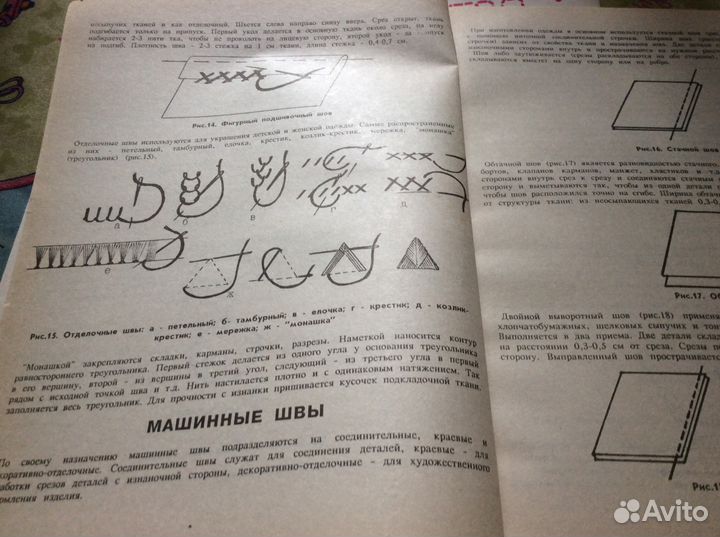 отсыпучих тканей и как отделочный. Шьется слева направо снизу вверх. Срез открыт, ткань
подгибается только на припуск. Первый укол делается в основную ткань около среза, на иглу
набирается 2-3 нити так, чтобы не проколоть на лицевую сторону, второй укол - за
на подгиб. Плотность шва - 2-3 стежка на 1 см ткани, длина стежка - 0,4-0,7 см.
Рис.14. Фигурный подшивочный шов
Отделочные швы используются для украшения детской и женской одежды. Самые распространенные
из них - петельный, тамбурный, елочка, крестик, козлик-крестик, мережка, "монашка"
(треугольник) (рис.15).
а б в г д
е ж
Рис.15. Отделочные швы: а - петельный; б- тамбурный; в - елочка; г - крестик; д - козлик-
крестик; е - мережка; ж - "монашка"
"Монашкой" закрепляются складки, карманы, строчки, разрезы. Наметкой наносится контур
равностороннего треугольника. Первый стежок делается из одного угла у основания треугольника
в его вершину, второй - из вершины в третий угол, следующий - из третьего угла в первый
рядом с исходной точкой шва и т.д. Нить настилается плотно и с одинаковым натяжением. Так
заполняется весь треугольник. Для прочности с изнанки пришивается кусочек подкладочной ткани.
МАШИННЫЕ ШВЫ
По своему назначению машинные швы подразделяются на соединительные, краевые и
коративно-отделочные. Соединительные швы служат для соединения деталей, краевые - для
аботки срезов деталей с изнаночной стороны, декоративно-отделочные - для художественного
ормления изделия.
При изготовлении одежды в основном используется стачной шов
строчки) зависит от свойства ткани и назначения шва. Две детали
изнаночными сторонами внутрь и прострачиваются на нужном
Шов либо заутюживается (срезы раскладываются на обе стороны)
складываются вместе на одну сторону или на ребро.
Рис.16. Стачной шов
Обтачной шов (рис.17) является разновидностью стачного
бортов, клапанов карманов, манжет, хлястиков и т.д.
сторонами внутрь срез к срезу и соединяются стачным
сторону и выметываются так, чтобы из одной детали
чтобы шов расположился точно на сгибе. Ширина
от структуры ткани: из неосыпающихся тканей 0,3-0,
Рис.17. Об
Двойной выворотный шов (рис.18) применя
хлопчатобумажных, шелковых сыпучих и тон
Выполняется в два приема. Две детали склад
на расстоянии 0,3-0,5 см от среза. Срезы по
сторону. Выправленный шов прострачивается
Рис.1
Avito